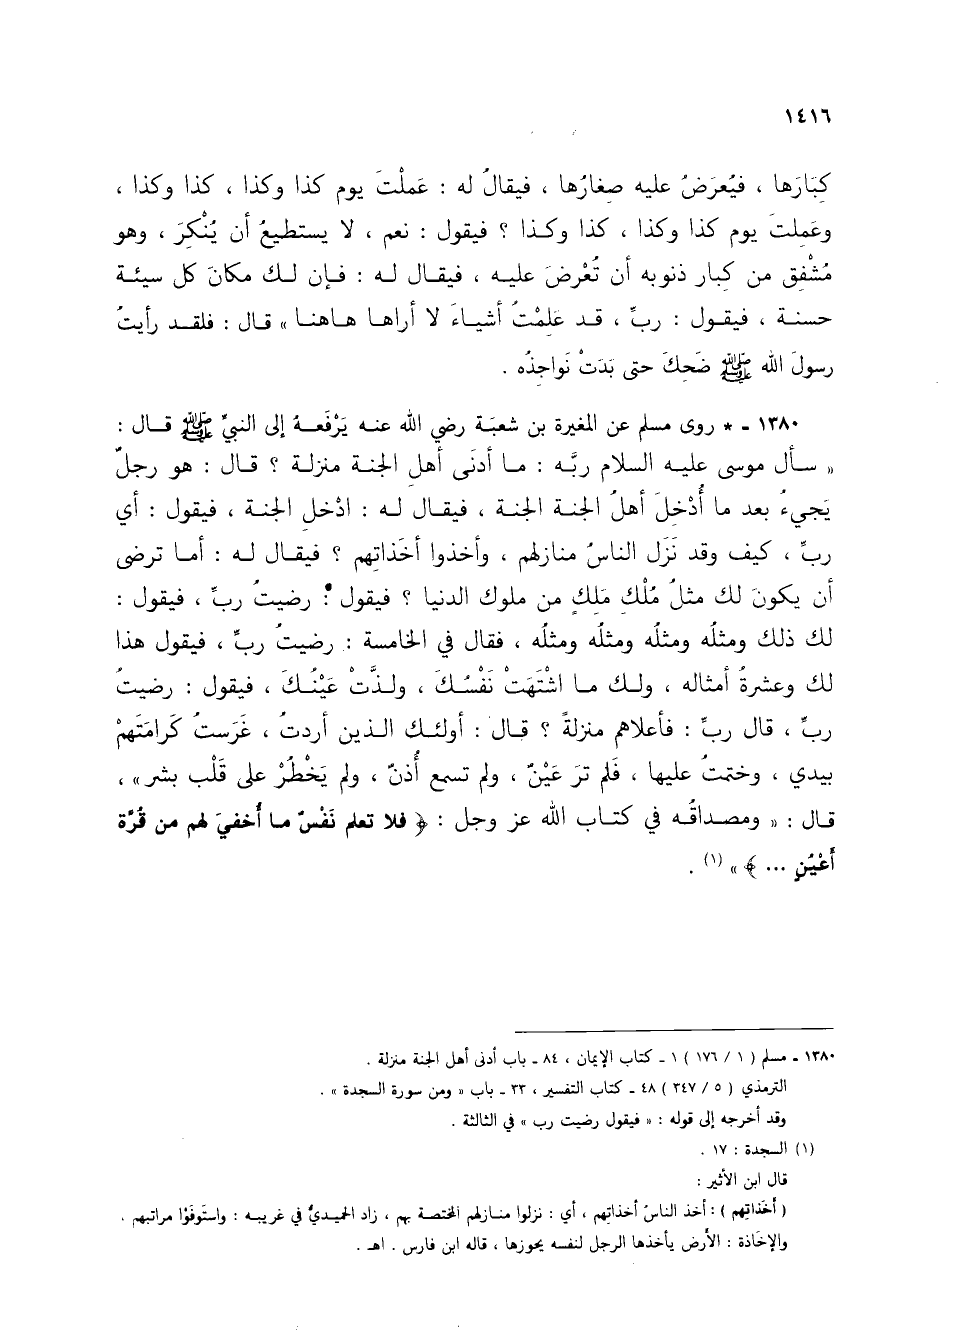 ١٤١٦
كِبَارَها ، فيُعرَضُ عليه صغارُها ، فيقالُ له : عَملْتَ يوم كذا وكذا ، كذا وكذا ،
وعَمِلتَ يوم كذا وكذا ، كذا وكـذا ؟ فيقول : نعم ، لا يستطيعُ أن يُنْكرَ ، وهو
مُشْفِق من كبار ذنوبه أن تُعْرضَ عليـه ، فيقـال لـه : فـإن لـك مكانَ كل سيئـة
حسنـة ، فيقـول : ربِّ ، قـد عَلِمْتُ أشيـاءَ لا أراهـا هـاهنـا » قـال : فلقـد رأيتُ
رسولَ الله ﷺ ضَحِكَ حتى بَدَتْ نَواجذُه .
١٣٨٠ ـ * روى مسلم عن المغيرة بن شعبَة رضي الله عنـه يَرْفَعـهُ إلى النبيِّ ﷺ قـال :
« سـأل موسى عليـه السـلام ربَّـه : مـا أدنَى أهـل الجنـة منزلـة ؟ قـال : هو رجلٌ
يَجيءُ بعد ما أُدْخِلَ أهلُ الجنـة الجنـة ، فيقـال لـه : ادْخل الجنـة ، فيقول : أي
ربِّ ، كيف وقد نَزَل الناسُ منازلهم ، وأخذوا أخَذاتِهم ؟ فيقـال لـه : أمـا ترضى
أن يكونَ لك مثلُ مُلْكِ مَلِكٍ من ملوك الدنيا ؟ فيقول : رضيتُ ربِّ ، فيقول :
لك ذلك ومثلُه ومثلُه ومثلُه ومثلُه ، فقال في الخامسة : رضيتُ ربِّ ، فيقول هذا
لك وعشرةُ أمثاله ، ولـك مـا اشْتَهَتْ نَفْسُـكَ ، ولـذَّتْ عَيْنُـكَ ، فيقول : رضيتُ
ربِّ ، قال ربِّ : فأعلاهم منزلةً ؟ قـال : أولئـك الـذين أردتُ ، غَرَستُ كَرامَتَهمْ
بيدي ، وختمتُ عليها ، فَلم ترَ عَيْنٌ ، ولم تسمع أُذنٌ ، ولم يَخْطُرْ على قَلْب بشر » ،
قـال : « ومصـداقُـه في كتـاب الله عز وجل : ﴿ فلا تعلم نَفْسٌ مـا أُخفيَ لهم من قُرَّة
أَعْيُنٍ ... ﴾ » (١) .
١٣٨٠ ـ مسلم ( ١ / ١٧٦ ) ١ ـ كتاب الإيمان ، ٨٤ ـ باب أدنى أهل الجنة منزلة .
الترمذي ( ٥ / ٣٤٧ ) ٤٨ ـ كتاب التفسير ، ٣٣ ـ باب « ومن سورة السجدة » .
وقد أخرجه إلى قوله : « فيقول رضيت رب » في الثالثة .
(١) السجدة : ١٧ .
قال ابن الأثير :
( أخَذاتِهم ) : أخذ الناسُ أخذاتهم ، أي : نزلوا منازلهم المختصة بهم ، زاد الحميديُّ في غريبه : واستوفَوْا مراتبهم .
والإخَاذة : الأرض يأخذها الرجل لنفسه يحوزها ، قاله ابن فارس . اهـ .